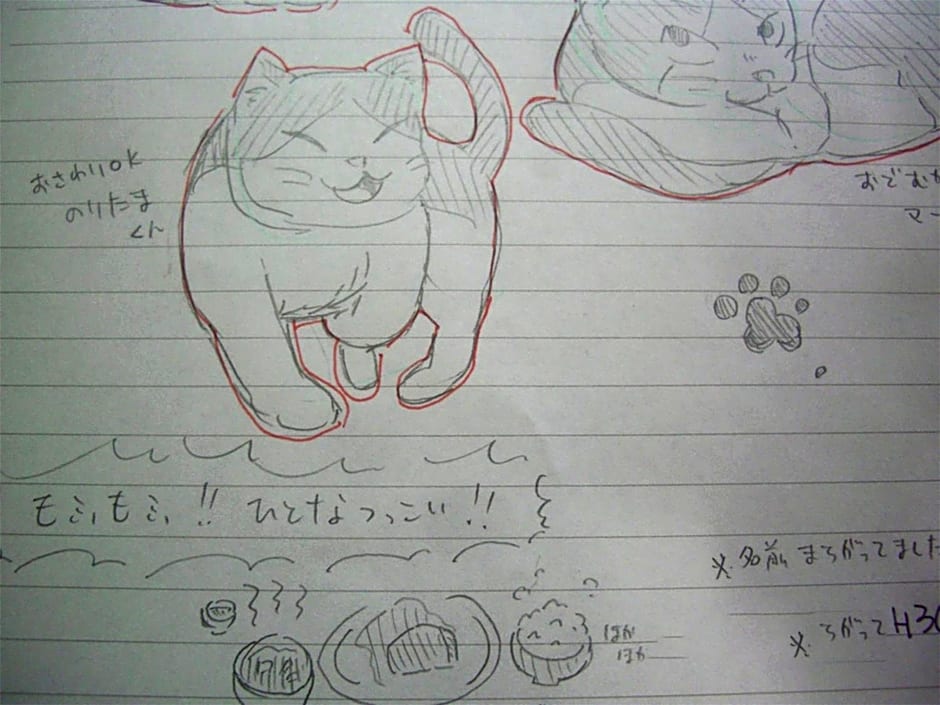 おさわりOK
のりたま
くん
おでむか
マー
もふもふ!! ひとなつっこい!!
※名前まちがってました
ほか
ほか
※ちがってH30